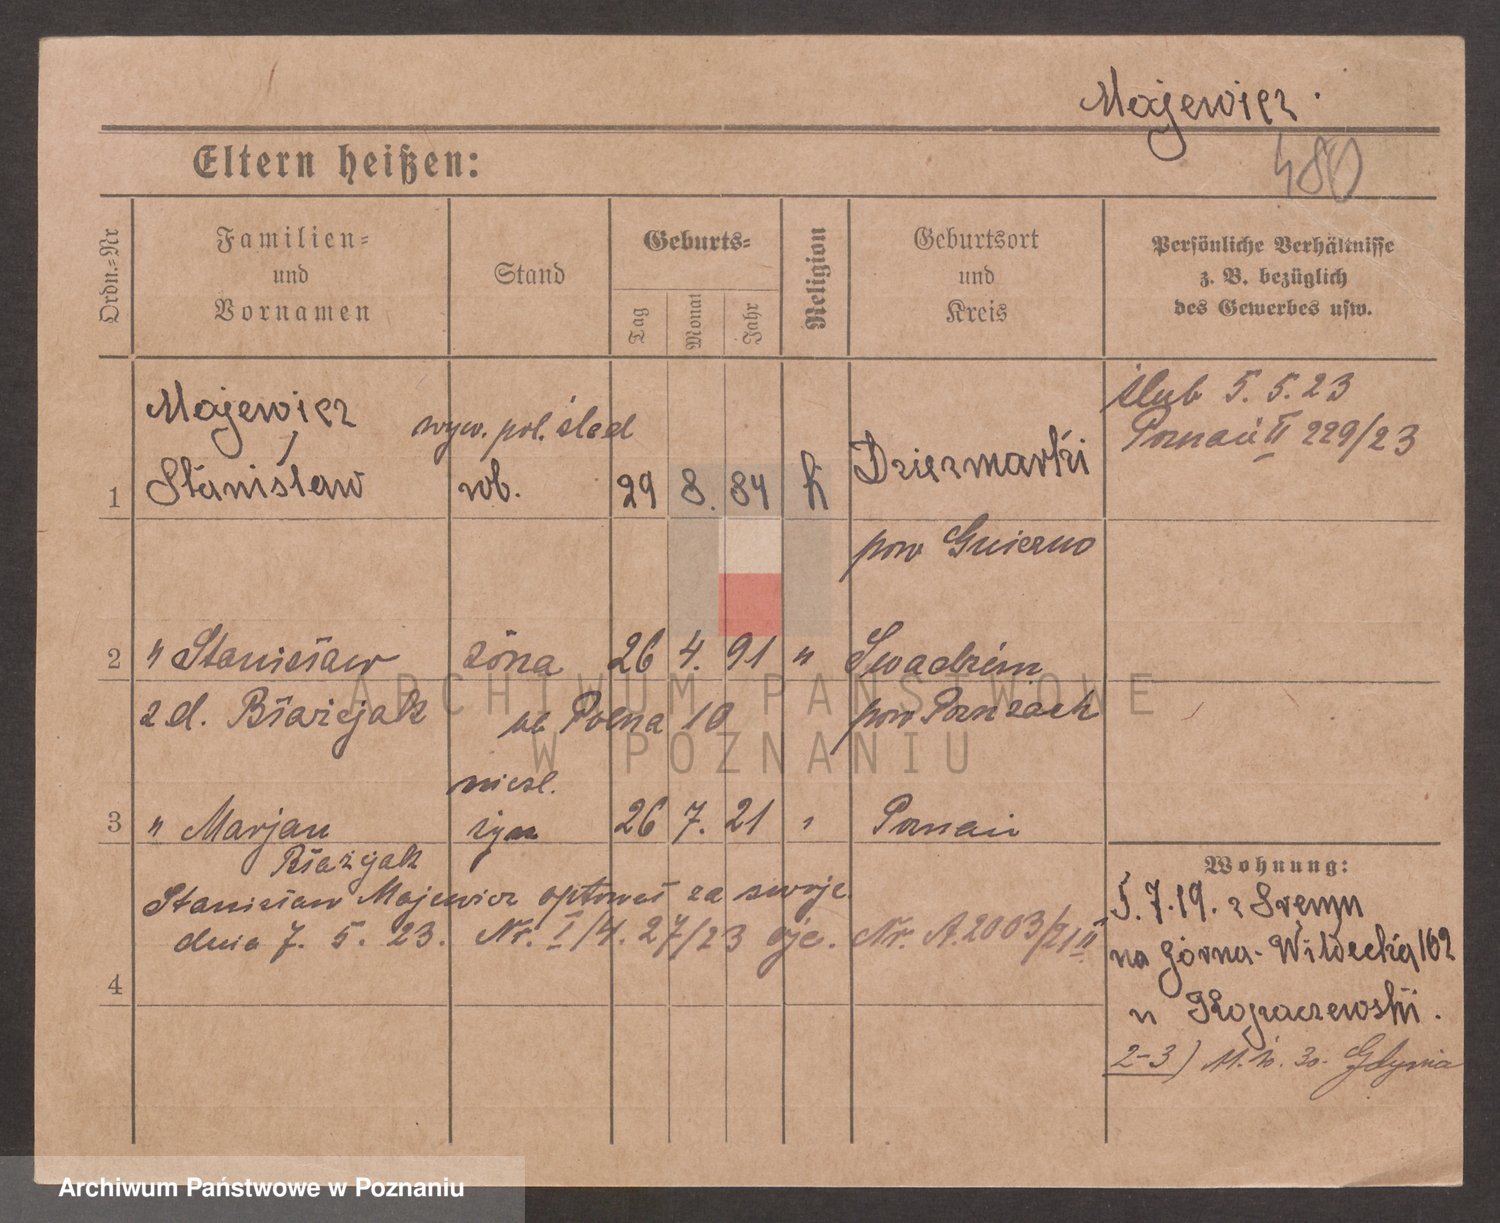 Majewicz.
480
Eltern heißen:
Ordn.=Nr
Familien=
und
Vornamen
Stand
Geburts=
Tag
Monat
Jahr
Religion
Geburtsort
und
Kreis
Persönliche Verhältnisse
z. B. bezüglich
des Gewerbes usw.
Majewicz
wyw. pol. śled
ślub 5. 5. 23
Poznań II 229/23
1 Stanisław rob. 29 8. 84 k Dziezmarki
pow Gniezno
2 " Stanisław żona 26 4. 91 " Swadzim
z d. Błażejak Polna 10 pow Poznzach
nieśl.
3 " Marjan syn 26 7. 21 " Poznań
Błażejak
Stanisław Majewicz optował za swoje
dnia 7. 5. 23. Nr. I/4. 27/23 Nr. A. 2003/21 II
4
Wohnung:
5.7.19. z Śremu
na Górna-Wildecką 162
u Kopaczewski.
2-3) 30. Gdynia
ARCHIWUM PAŃSTWOWE
W POZNANIU
Archiwum Państwowe w Poznaniu